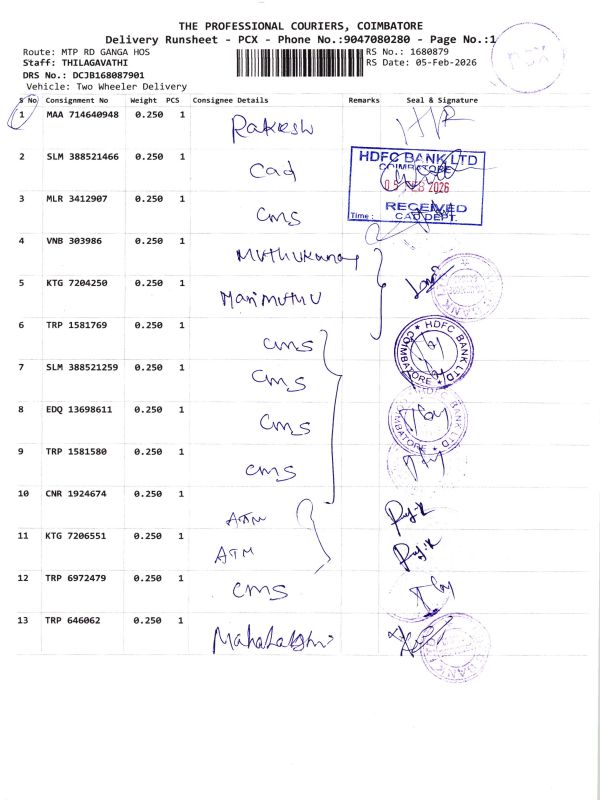 THE PROFESSIONAL COURIERS, COIMBATORE
Delivery Runsheet - PCX - Phone No.:9047080280 - Page No.:1
Route: MTP RD GANGA HOS RS No.: 1680879
Staff: THILAGAVATHI RS Date: 05-Feb-2026
DRS No.: DCJB168087901
Vehicle: Two Wheeler Delivery
S No Consignment No Weight PCS Consignee Details Remarks Seal & Signature
1 MAA 714640948 0.250 1 Rakesh
2 SLM 388521466 0.250 1 Cad
HDFC BANK LTD
COIMBATORE
05 FEB 2026
RECEIVED
Time : CAD DEPT.
3 MLR 3412907 0.250 1 cms
4 VNB 303986 0.250 1 Muthukumar
5 KTG 7204250 0.250 1 Marimuthu
6 TRP 1581769 0.250 1 cms
HDFC BANK LTD
COIMBATORE
7 SLM 388521259 0.250 1 cms
8 EDQ 13698611 0.250 1 cms
HDFC BANK LTD
COIMBATORE
9 TRP 1581580 0.250 1 cms
10 CNR 1924674 0.250 1 ATM
11 KTG 7206551 0.250 1 ATM
12 TRP 6972479 0.250 1 cms
13 TRP 646062 0.250 1 Mahalakshmi